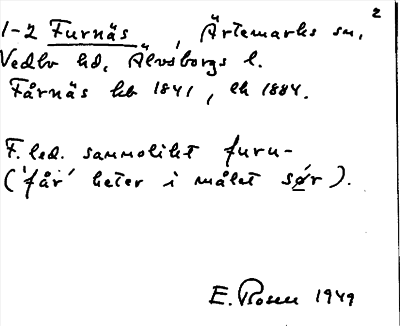 2
1-2 Furnäs, Ärtemarks sn,
Vedbo hd, Älvsborgs l.
Fårnäs hb 1841, ek 1884.
F. led. sannolikt furu-
('får' heter i målet sør).
E. Rosen 1949